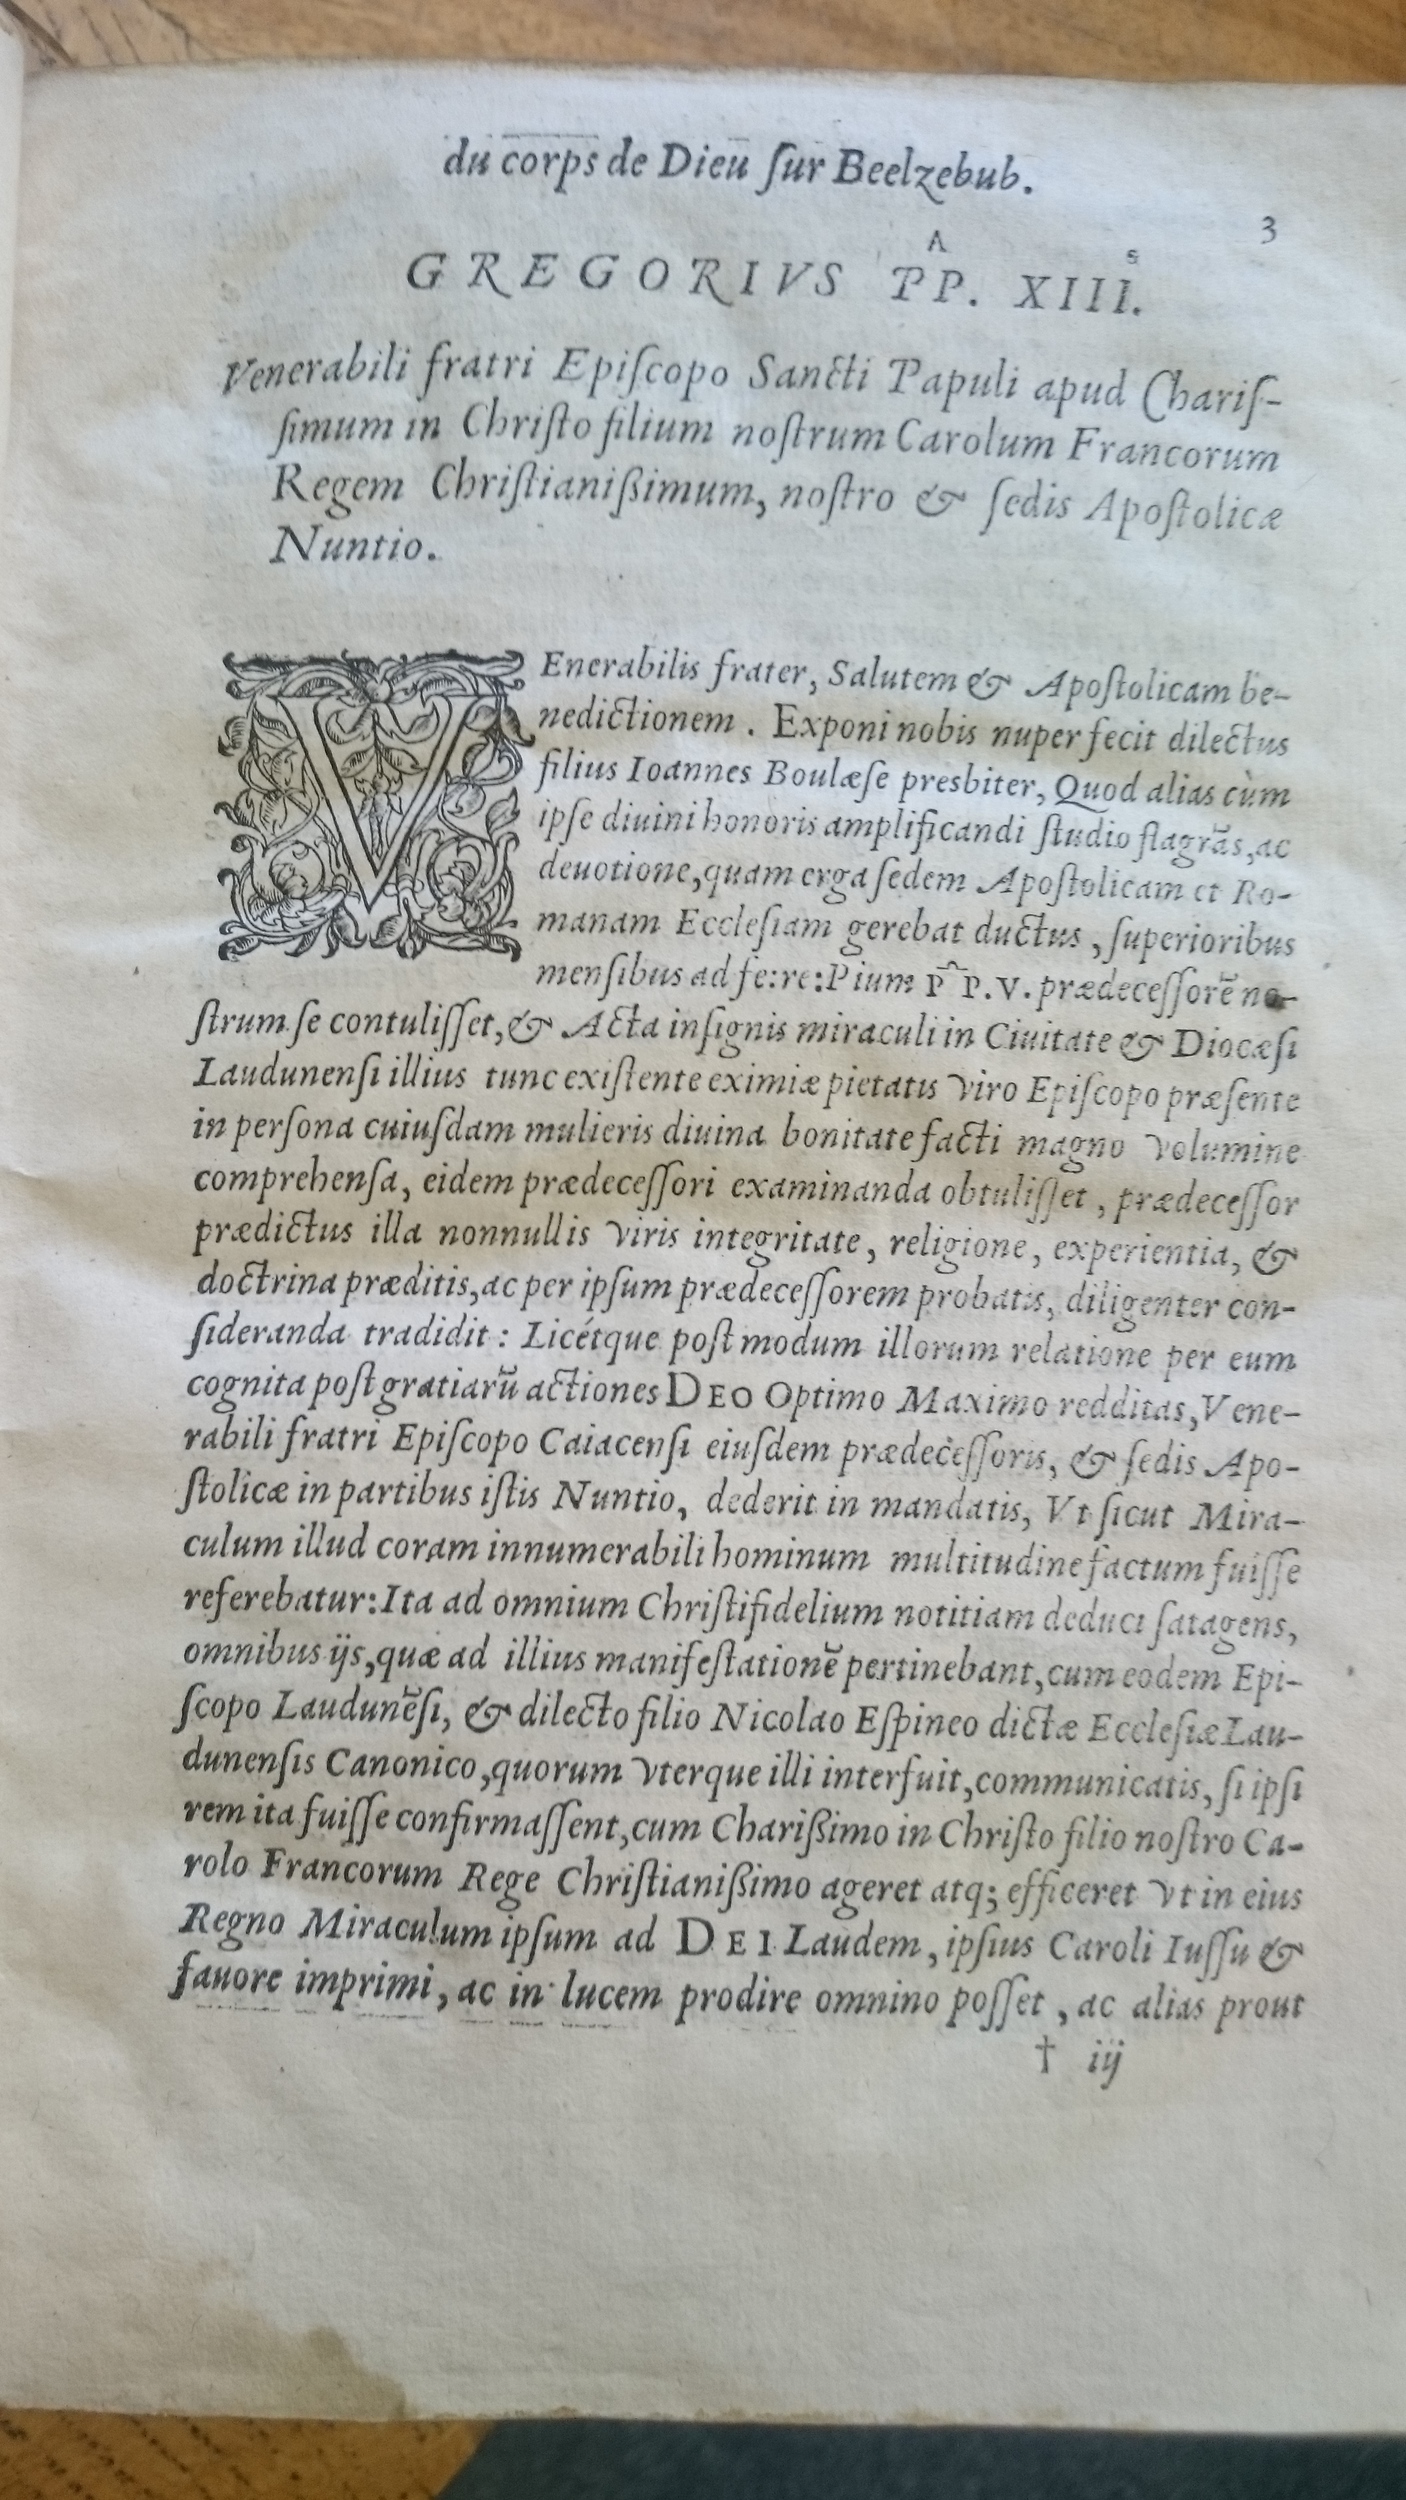 du corps de Dieu ſur Beelzebub.
3
GREGORIVS P̂P. XIIIˢ.
Venerabili fratri Epiſcopo Sancti Papuli apud Chariſ-
ſimum in Chriſto filium noſtrum Carolum Francorum
Regem Chriſtianißimum, noſtro & ſedis Apoſtolicæ
Nuntio.
VEnerabilis frater, Salutem & Apoſtolicam be-
nedictionem. Exponi nobis nuper fecit dilectus
filius Ioannes Boulæſe presbiter, Quod alias cùm
ipſe diuini honoris amplificandi ſtudio flagrãs, ac
deuotione, quam erga ſedem Apoſtolicam et Ro-
manam Eccleſiam gerebat ductus, ſuperioribus
menſibus ad fe:re:Pium P̂P.V. prædeceſſorẽ no-
ſtrum ſe contuliſſet, & Acta inſignis miraculi in Ciuitate & Diocæſi
Laudunenſi illius tunc exiſtente eximiæ pietatis viro Epiſcopo præſente
in perſona cuiuſdam mulieris diuina bonitate facti magno volumine
comprehenſa, eidem prædeceſſori examinanda obtuliſſet, prædeceſſor
prædictus illa nonnullis viris integritate, religione, experientia, &
doctrina præditis, ac per ipſum prædeceſſorem probatis, diligenter con-
ſideranda tradidit: Licétque poſtmodum illorum relatione per eum
cognita poſt gratiarũ actiones DEO Optimo Maximo redditas, Vene-
rabili fratri Epiſcopo Caiacenſi eiuſdem prædeceſſoris, & ſedis Apo-
ſtolicæ in partibus iſtis Nuntio, dederit in mandatis, Vt ſicut Mira-
culum illud coram innumerabili hominum multitudine factum fuiſſe
referebatur: Ita ad omnium Chriſtifidelium notitiam deduci ſatagens,
omnibus ijs, quæ ad illius manifeſtationẽ pertinebant, cum eodem Epi-
ſcopo Laudunẽſi, & dilecto filio Nicolao Eſpineo dictæ Eccleſiæ Lau-
dunenſis Canonico, quorum vterque illi interfuit, communicatis, ſi ipſi
rem ita fuiſſe confirmaſſent, cum Charißimo in Chriſto filio noſtro Ca-
rolo Francorum Rege Chriſtianißimo ageret atq; efficeret vt in eius
Regno Miraculum ipſum ad DEI Laudem, ipſius Caroli Iuſſu &
fauore imprimi, ac in lucem prodire omnino poſſet, ac alias prout
† iij